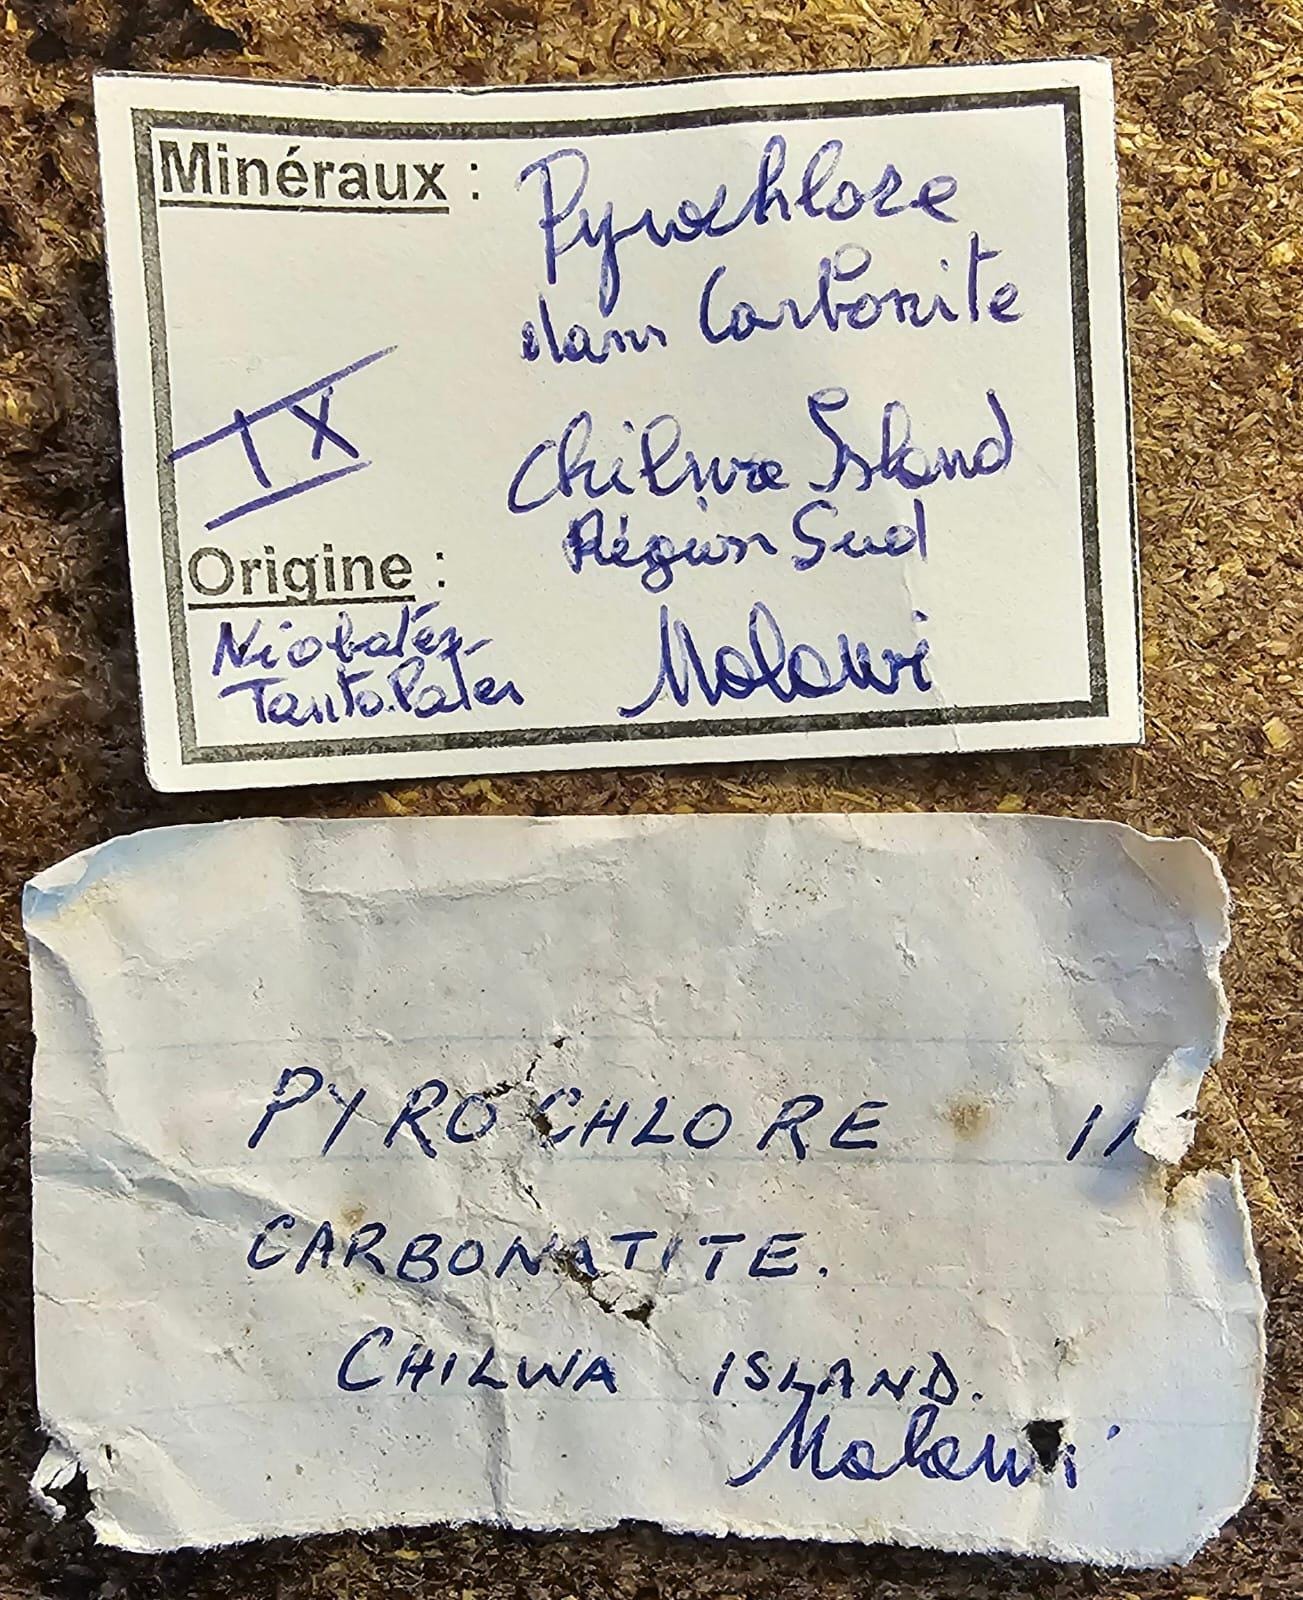 Minéraux : Pyrochlore
dans Carbonite
IX
Chilwa Island
Région Sud
Origine :
Niobates
Tantalates
Malawi
PYROCHLORE IN
CARBONATITE.
CHILWA ISLAND.
Malawi